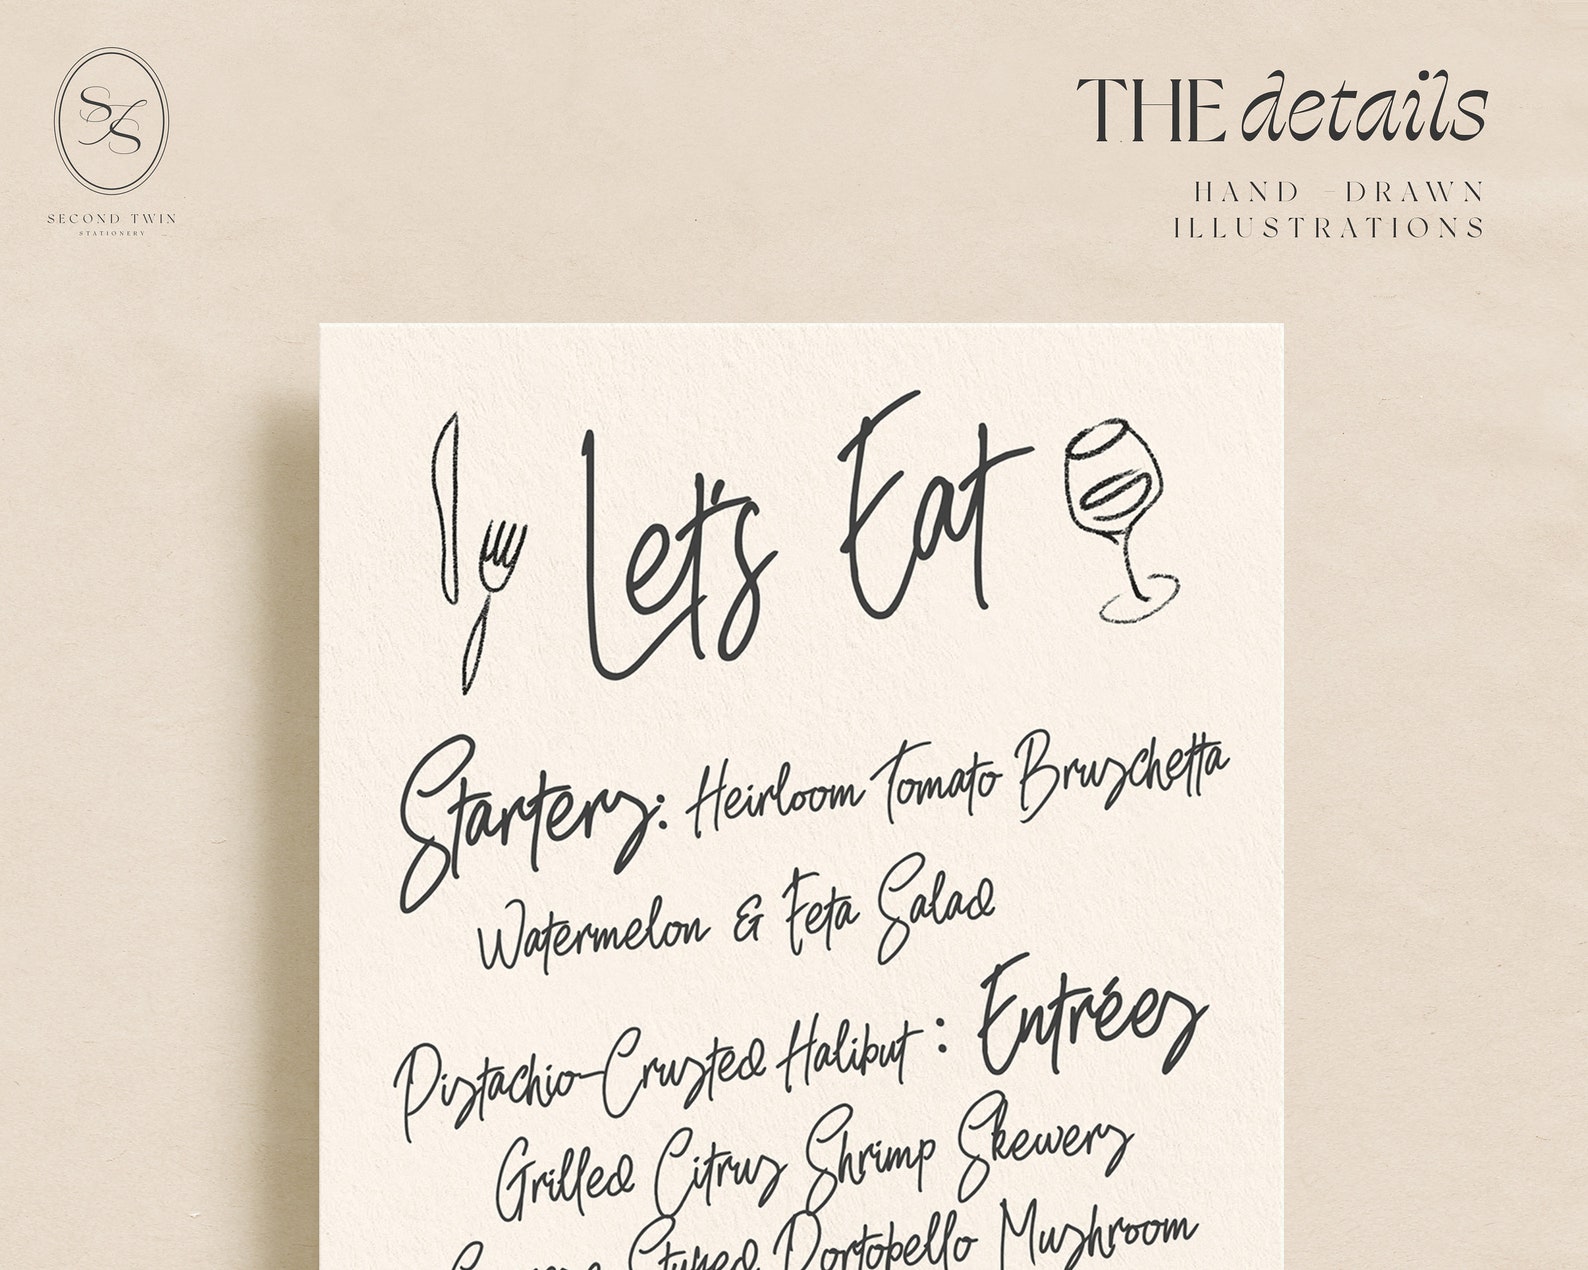 SS
SECOND TWIN
STATIONERY
THE details
HAND-DRAWN
ILLUSTRATIONS
Let's Eat
Starters: Heirloom Tomato Bruschetta
Watermelon & Feta Salad
Pistachio-Crusted Halibut : Entrées
Grilled Citrus Shrimp Skewers
Portobello Mushroom